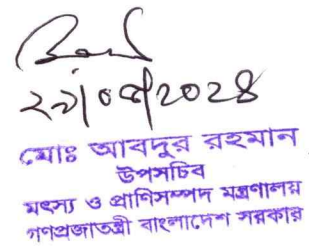 ২৯/০৫/২০২৪
মোঃ আবদুর রহমান
উপসচিব
মৎস্য ও প্রাণিসম্পদ মন্ত্রণালয়
গণপ্রজাতন্ত্রী বাংলাদেশ সরকার